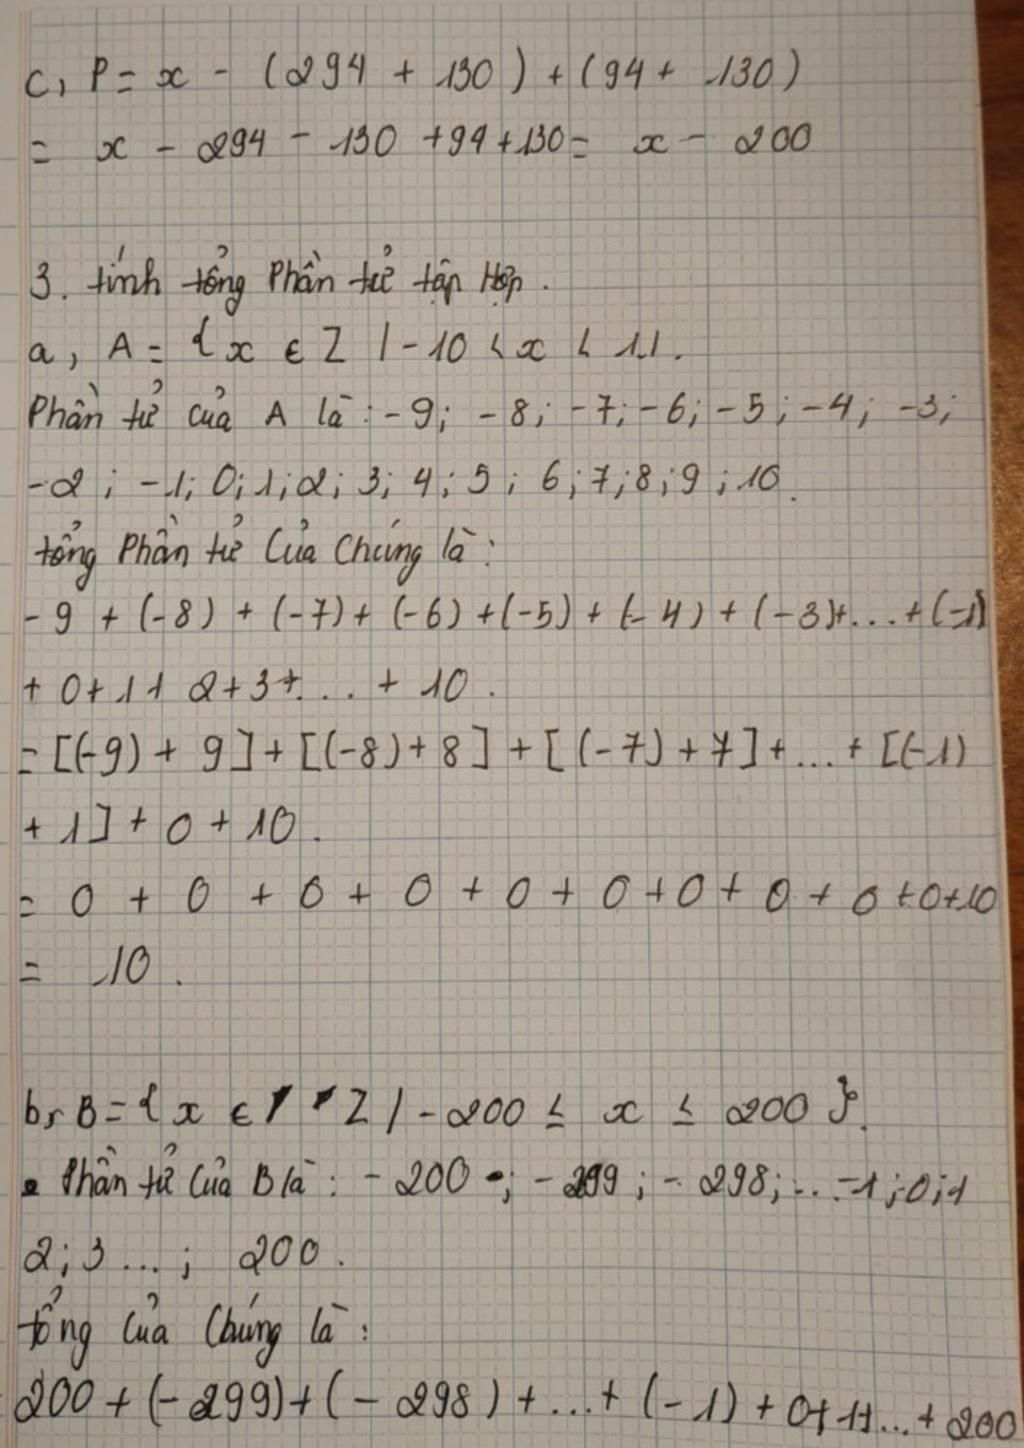 c, P = x - (294 + 130) + (94 + 130)
= x - 294 - 130 + 94 + 130 = x - 200
3. tính tổng Phần tử tập Hợp.
a, A = { x ∈ Z | -10 < x < 11.
Phần tử của A là : -9; -8; -7; -6; -5; -4; -3;
-2; -1; 0; 1; 2; 3; 4; 5; 6; 7; 8; 9; 10.
tổng Phần tử Của Chúng là :
-9 + (-8) + (-7) + (-6) + (-5) + (-4) + (-3) + ... + (-1)
+ 0 + 1 + 2 + 3 + ... + 10.
= [(-9) + 9] + [(-8) + 8] + [(-7) + 7] + ... + [(-1)
+ 1] + 0 + 10.
= 0 + 0 + 0 + 0 + 0 + 0 + 0 + 0 + 0 + 0 + 10
= 10.
b, B = { x ∈ Z | -200 ≤ x ≤ 200 }.
Phần tử Của B là : -200 ; -299 ; -298; ... -1; 0; 1
2; 3 ...; 200.
tổng Của Chúng là :
200 + (-299) + (-298) + ... + (-1) + 0 + 1 + ... + 200